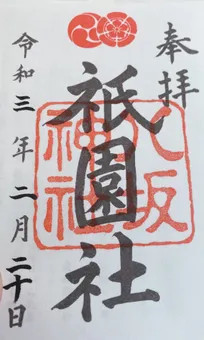 奉拝
八坂神社
祇園社
令和三年二月二十日